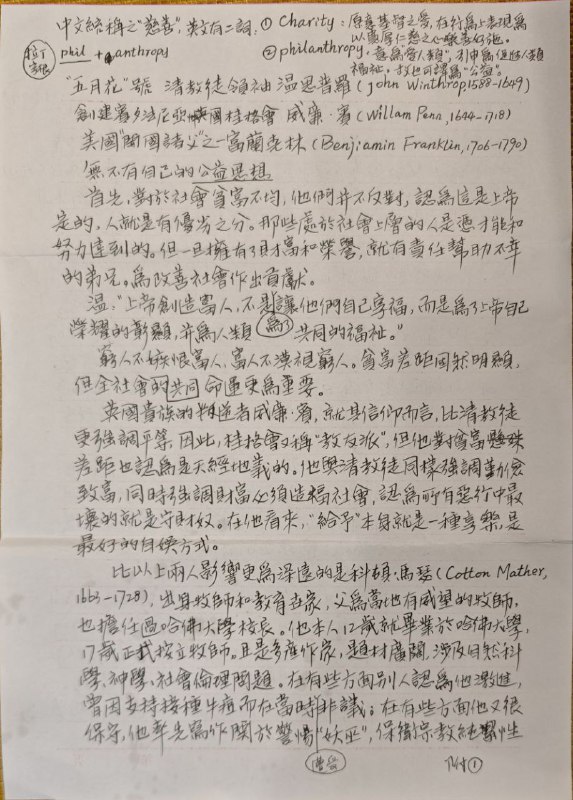 中文統稱之“慈善”,英文有二詞:① Charity:原意基督之愛,在行爲上表現爲
以寬厚仁慈之心樂善好施。
拉丁字根 phil + anthropy ② philanthropy,意爲“愛人類”,引申爲促進人類
福祉。故也可謂爲“公益”。
“五月花”號 清教徒領袖温思普羅(john Winthrop,1588-1649)
創建賓夕法尼亞 桂格會 威廉·賓(Willam Penn, 1644-1718)
美國“開國諸父”之一富蘭克林(Benjiamin Franklin, 1706-1790)
無不有自己的公益思想
首先,對於社會貧富不均,他們并不反對,認爲這是上帝
定的,人就是有優劣之分。那些處於社會上層的人是憑才能和
努力達到的。但一旦擁有了財富和榮譽,就有責任幫助不幸
的弟兄。爲改善社會作出貢獻。
温:“上帝創造富人,不是讓他們自己享福,而是爲了上帝自己
榮耀的彰顯,并爲人類 爲了 共同的福祉。”
窮人不嫉恨富人,富人不漠視窮人。貧富差距固然明顯,
但全社會的共同命運更爲重要。
英國貴族的叛逆者威廉·賓,就其信仰而言,比清教徒
更強調平等,因此,桂格會又稱“教友派”,但他對貧富懸殊
差距也認爲是天經地義的。他與清教徒同樣強調勤儉
致富,同時強調財富必須造福社會,認爲所有惡行中最
壞的就是守財奴。在他看來,“給予”本身就是一種享樂,是
最好的自娛方式。
比以上兩人影響更爲深遠的是科頓·馬瑟(Cotton Mather,
1663-1728),出身牧師和教育世家,父爲當地有威望的牧師,
也擔任過哈佛大學校長。他本人12歲就畢業於哈佛大學,
17歲正式按立牧師。且是多産作家,題材廣闊,涉及自然科
學、神學、社會倫理問題。在有些方面別人認爲他激進,
曾因支持接種牛痘而在當時 曹 非議;在有些方面他又很
保守,他率先寫作關於警惕“妖巫”,保衛宗教純潔性
附①